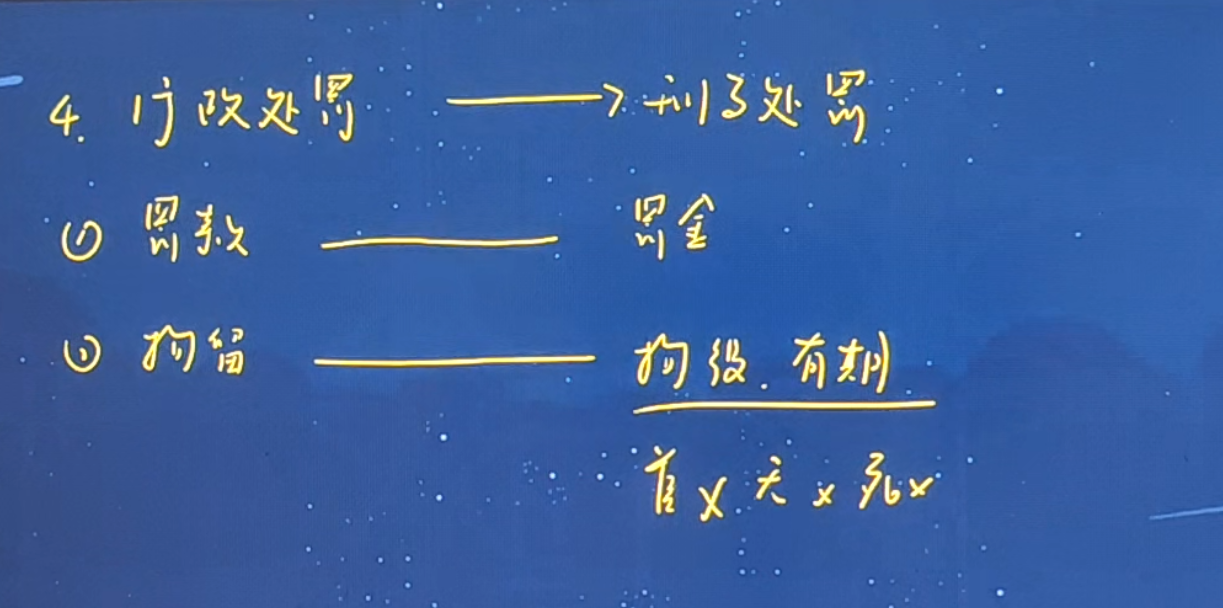 4. 行政处罚 ——→ 刑事处罚
① 罚款 —— 罚金
② 拘留 —— 拘役、有期
管× 无× 死×